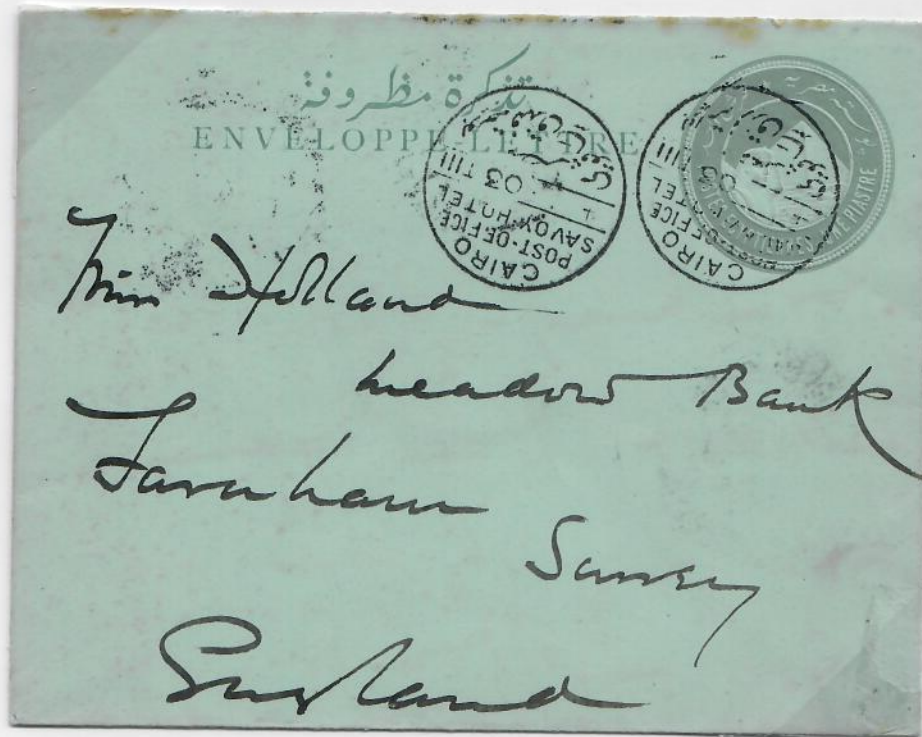 تذكرة مظروفة
ENVELOPPE-LETTRE
CAIRO
POST-OFFICE
SAVOY-HOTEL
03 TIII
CAIRO
POST-OFFICE
SAVOY-HOTEL
03 TIII
PIASTRE
Miss Holland
Meadow Bank
Farnham
Surrey
England